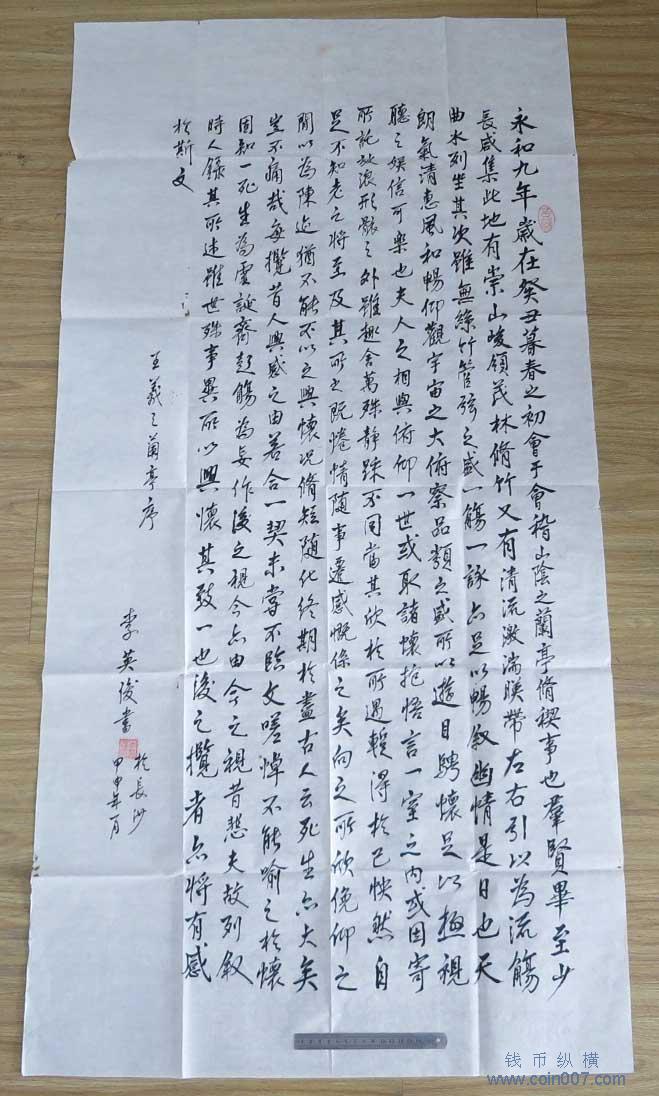 永和九年歲在癸丑暮春之初會于會稽山陰之蘭亭脩禊事也羣賢畢至少
長咸集此地有崇山峻領茂林脩竹又有清流激湍暎帶左右引以為流觴
曲水列坐其次雖無絲竹管弦之盛一觴一詠亦足以暢敘幽情是日也天
朗氣清惠風和暢仰觀宇宙之大俯察品類之盛所以遊目騁懷足以極視
聽之娛信可樂也夫人之相與俯仰一世或取諸懷抱悟言一室之內或因寄
所託放浪形骸之外雖趣舍萬殊靜躁不同當其欣於所遇輒得於己怏然自
足不知老之將至及其所之既惓情隨事遷感慨係之矣向之所欣俛仰之
間以為陳迹猶不能不以之興懷況脩短隨化終期於盡古人云死生亦大矣
豈不痛哉每攬昔人興感之由若合一契未嘗不臨文嗟悼不能喻之於懷
固知一死生為虛誕齊彭觴為妄作後之視今亦由今之視昔悲夫故列敘
時人錄其所述雖世殊事異所以興懷其致一也後之攬者亦將有感
於斯文
王羲之蘭亭序
李英俊書
於長沙
甲申年八月
钱币纵横
www.coin007.com